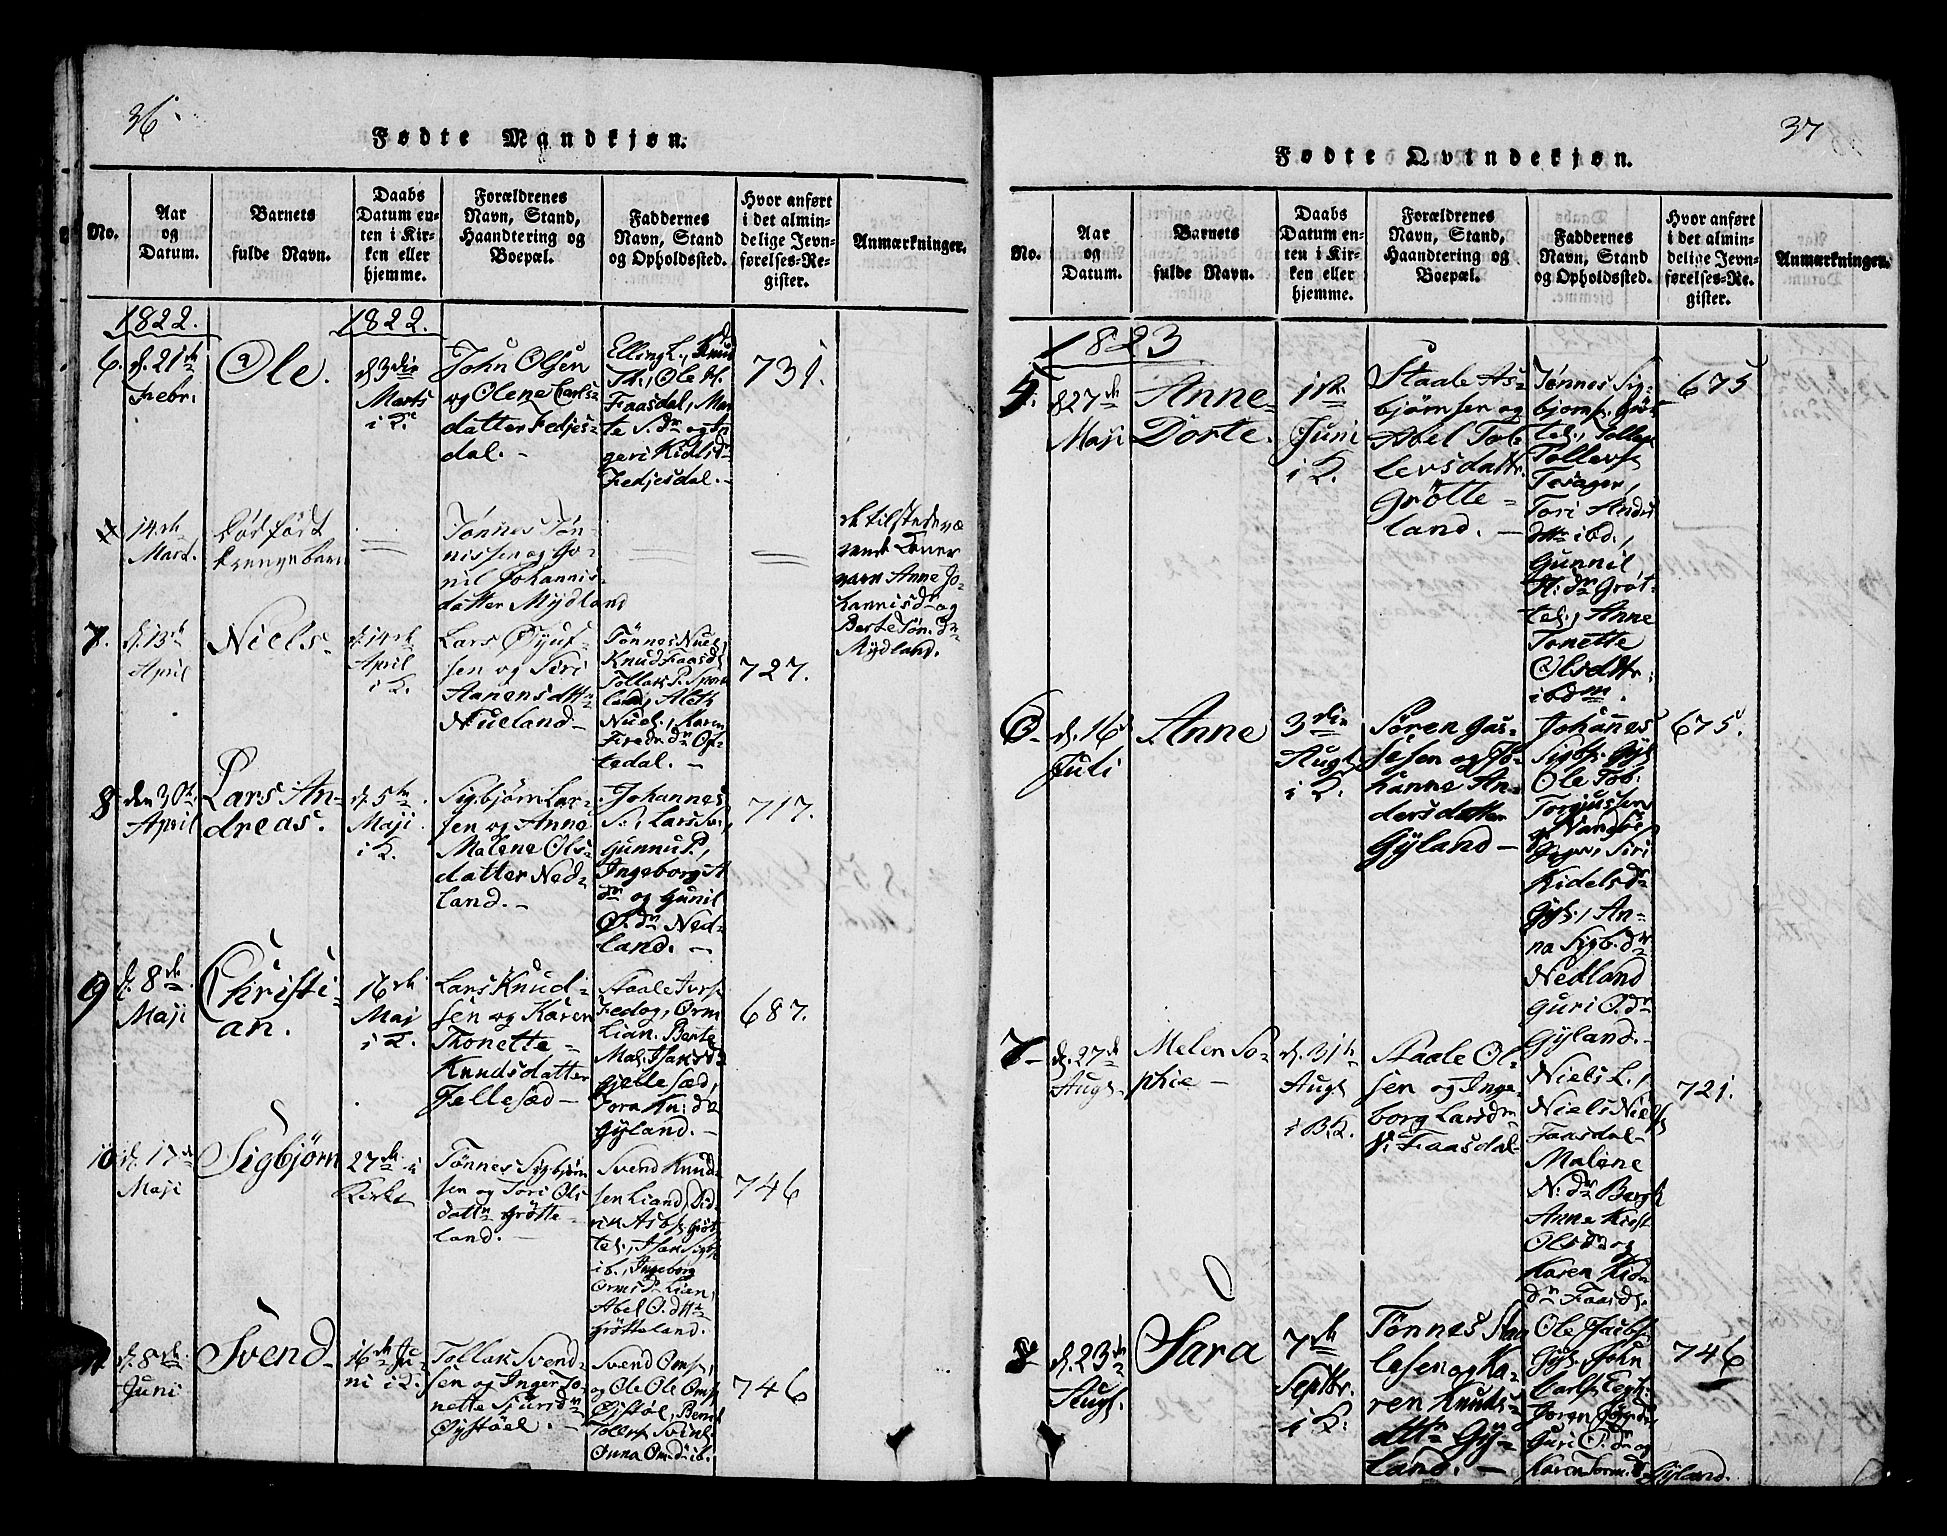 36.
Fødte Mandkjøn.
No.
Aar
og
Datum.
Barnets
fulde Navn.
Daabs
Datum en-
ten i Kir-
ken eller
hjemme.
Forældrenes
Navn, Stand,
Haandtering og
Boepæl.
Faddernes
Navn, Stand
og Opholdssted.
Hvor anført
i det almin-
delige Jevn-
førelses-Re-
gister.
Anmærkninger.
1822.
1822.
6.
d. 21de
Febr.
Ole.
d 3die
Marts
i K.
John Olsen
og Olene Carls-
datter Fedjes-
dal. -
Elling L., Knud
Th., Ole H.
Faasdal, Mar
te S.dr og In
geri Kidlsd
Fedjesdal. -
731.
14de
Mart.
Død född
Drengebarn
Tønnes Tøn-
nissen og Go-
nil Johannis-
datter Mydland
de tilstedevæ
rende Koner
vare Anne Jo-
hannisdr og
Berte Tøn. dr
Mydland.
7.
d. 13de
April
Niels-
d. 14de
April
i K.
Lars Øjuf-
sen og Siri
Aanensdttr
Nueland-
Tønnes Nuel.,
Knud Faasd.
Tollak P.
land, Aleth
Nuel., Karen
Fredr. dr Of-
tedal. -
727.
8
den 30te
April
Lars An-
dreas.
d. 5te
Maji
i K.
Sigbjørn Lar-
sen og Anne
Malene Ols-
datter Ned-
land. -
Johannes
S., Lars So.,
Gunnu P.,
Ingeborg A
dr og Gunil
O. dr Ned-
land. -
717.
9
d. 8de
Maji
Christi-
an.
16de
Maj
i K.
Lars Knud-
sen og Karen
Thonette
Knudsdatter
Fellesæd -
Staale Ivers.
Fedog, Orm
Lian. Berte
Mal. Isaksd
Gjellesæd,
Tora Kn: dr
Gyland. -
687.
10
d. 17de
Maji
Sigbjørn
27de i
Kirke
Tønnes Sigbjørn
sen og Tori Ols
dattr Grötte-
land. -
Svend Knud-
sen Liand, Did-
rik Asbs. Grøt-
tel., Isak Sigb.
ib., Ingeborg
Ormsd. Lian,
Abel O. dttr
Grötteland.
746
11
d. 8de
Juni
Svend-
16de Ju-
ni i K.
Tollak Svend-
sen og Inger To-
nette Sjursdr
Öystöel. -
Svend Oms.,
og Ole Ole Oms.
Öjstöl, Berte
Tollefs. Svinl.
Anna Om.dr ib.
746
37
Fødte Qvindekjøn.
No.
Aar
og
Datum.
Barnets
fulde Navn.
Daabs
Datum en-
ten i Kir-
ken eller
hjemme.
Forældrenes
Navn, Stand,
Haandtering og
Boepæl.
Faddernes
Navn, Stand
og Opholdssted.
Hvor anført
i det almin-
delige Jevn-
førelses-Re-
gister.
Anmærkninger.
1823
5.
d 27de
Maji
Anne
Dorte.
1ste
Juni
i K.
Staale As-
bjørnsen og
Abel Tol-
levsdattr
Grötte-
land. -
Tønnes Sig-
bjørns. Gröt
tel., Tollef
Tollevs.
Tesager,
Tori Andrs
dttr ibd.,
Gunnil
H: dr Gröt-
tel., Anne
Tonette
Olsdttr.
ibdm.
675
6.
d. 16
Juli
Anne
3die
Augt.
i K.
Søren Gas-
sesen og Jo-
hanne An-
dersdatter
Gyland -
Johannes
Sigbs. Gyl.
Ole Tob.
Torjussen
Siri
Kidelsd.
Gyl., An-
na Sigb. dr
Nedland
Guri O. dr
Gyland. -
675.
7 -
d. 27de
Augt.
Melen So-
phie -
d. 31te
Augt
i B.K.
Staale Ol-
sen og Inge-
borg Larsdr
Faasdal-
Niels L.,
Niels Niels
Faasdal-
Malene
N: dr Bergh
Anne Kirst
Olsdr og
Karen Kid
dr Faasd.
721.
8
d. 23de
Augt.
Sara
7de
Septbr.
i K.
Tønnes Staa
lesen og Ka-
ren Knuds-
dttr Gy-
land. -
Ole
Gyl., John
Carls.
Guri P. dr og
Karen Torm. d. Gyland.
746